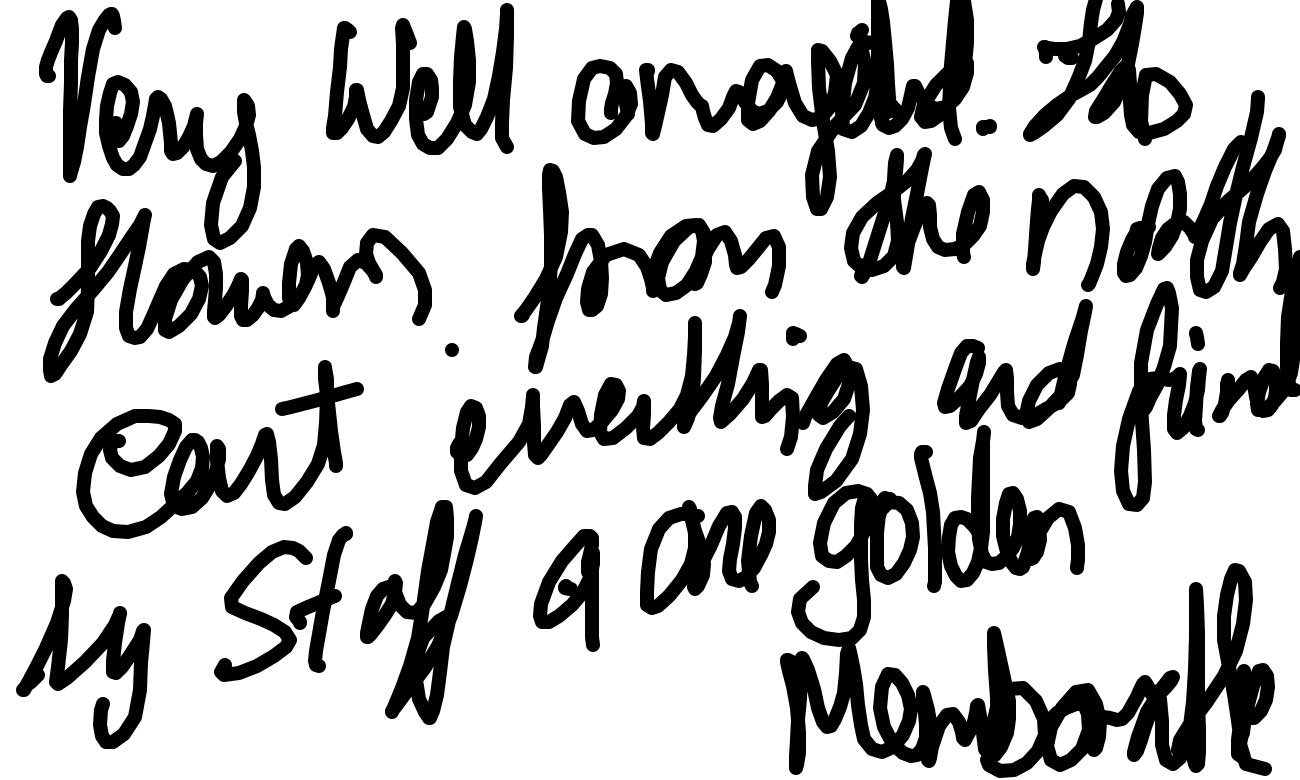 Very Well arranged. The
flowers. from the north
East everthing and friend
ly Staff a one golden
Membarthe